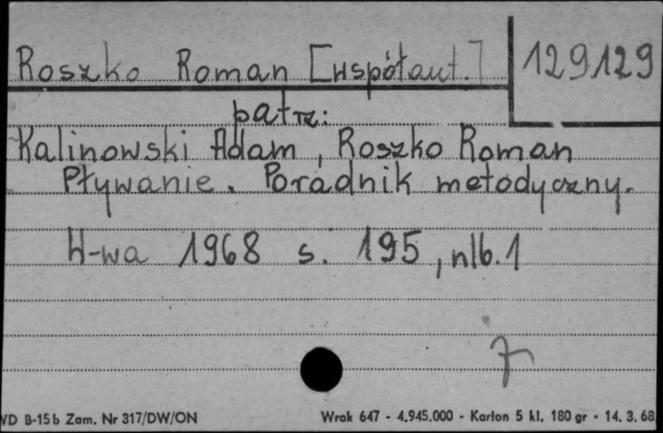 Roszko Roman [współaut.] 129129
patrz:
Kalinowski Adam, Roszko Roman
Pływanie. Poradnik metodyczny.
W-wa 1968 s. 195, nlb. 1
7
WD B-15b Zam. Nr 317/DW/ON Wrak 647 - 4.945.000 - Karton 5 kl. 180 gr - 14. 3. 68